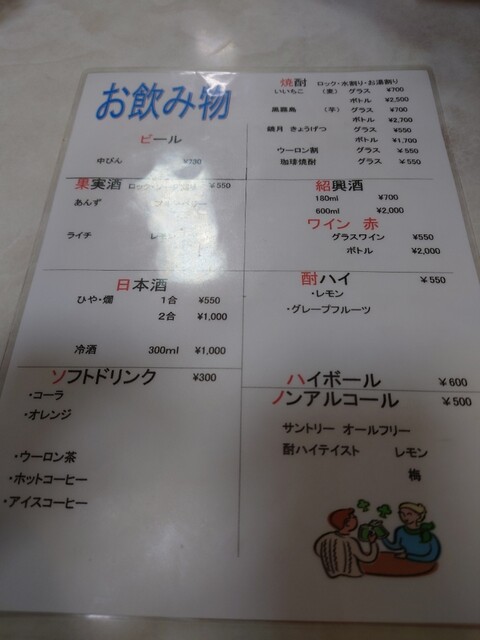 お飲み物
ビール
中びん ¥700
果実酒 ロック・ ¥550
あんず
ライチ レモン
日本酒
ひや・燗 1合 ¥550
2合 ¥1,000
冷酒 300ml ¥1,000
ソフトドリンク ¥300
・コーラ
・オレンジ
・ウーロン茶
・ホットコーヒー
・アイスコーヒー
焼酎 ロック・水割り・お湯割り
いいちこ (麦) グラス ¥700
ボトル ¥2,500
黒霧島 (芋) グラス ¥700
ボトル ¥2,700
鏡月 きょうげつ グラス ¥550
ボトル ¥1,700
ウーロン割 グラス ¥550
珈琲焼酎 グラス ¥550
紹興酒
180ml ¥700
600ml ¥2,000
ワイン 赤
グラスワイン ¥550
ボトル ¥2,000
酎ハイ ¥550
・レモン
・グレープフルーツ
ハイボール ¥600
ノンアルコール ¥500
サントリー オールフリー
酎ハイテイスト レモン
梅